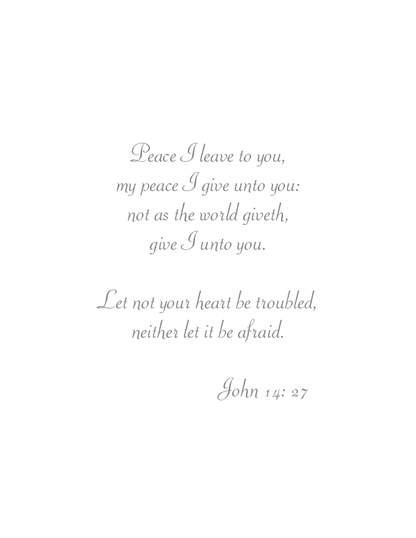 Peace I leave to you,
my peace I give unto you:
not as the world giveth,
give I unto you.
Let not your heart be troubled,
neither let it be afraid.
John 14: 27